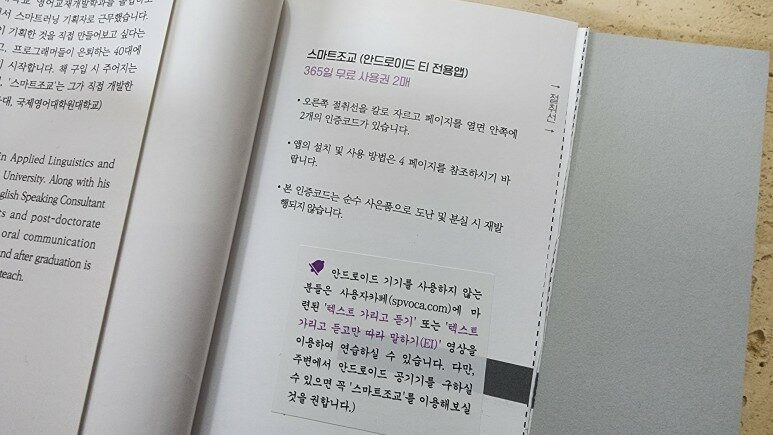 영어교재개발학과를 졸업하고
서 스마트러닝 기획자로 근무했습니다.
이 기획한 것을 직접 만들어보고 싶다는
고, 프로그래머들이 은퇴하는 40대에
시작합니다. 책 구입 시 주어지는
'스마트조교'는 그가 직접 개발한
대, 국제영어대학원대학교)
in Applied Linguistics and
University. Along with his
nglish Speaking Consultant
s and post-doctorate
oral communication
nd after graduation is
teach.
스마트조교 (안드로이드 EI 전용앱)
365일 무료 사용권 2매
• 오른쪽 절취선을 칼로 자르고 페이지를 열면 안쪽에
2개의 인증코드가 있습니다.
• 앱의 설치 및 사용 방법은 4 페이지를 참조하시기 바
랍니다.
• 본 인증코드는 순수 사은품으로 도난 및 분실 시 재발
행되지 않습니다.
안드로이드 기기를 사용하지 않는
분들은 사용자카페(spvoca.com)에 마
련된 '텍스트 가리고 듣기' 또는 '텍스트
가리고 듣고만 따라 말하기(EI)' 영상을
이용하여 연습하실 수 있습니다. 다만,
주변에서 안드로이드 공기기를 구하실
수 있으면 꼭 '스마트조교'를 이용해보실
것을 권합니다.)
↑ 절취선 ↓